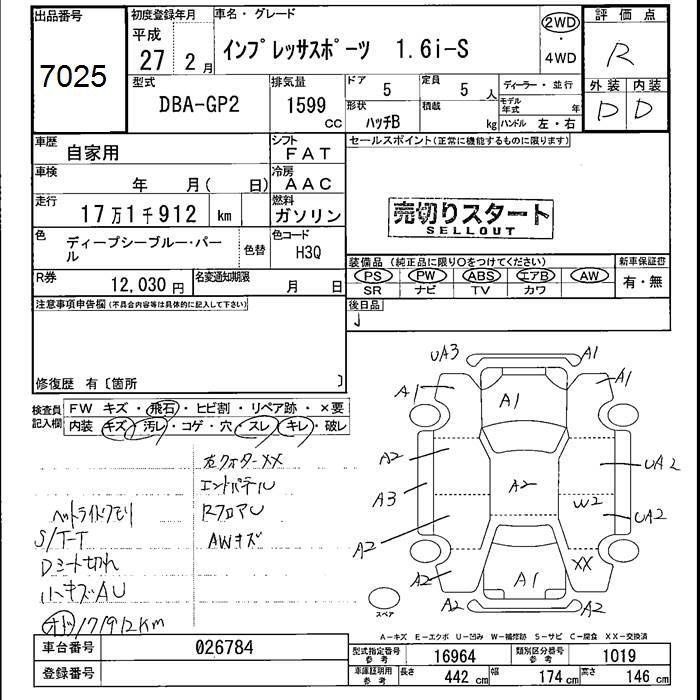 出品番号
7025
初度登録年月
平成
27年 2月
車名・グレード
インプレッサスポーツ 1.6i-S
2WD
・
4WD
評価点
R
外装 内装
D D
型式
DBA-GP2
排気量
1599
CC
ドア
5
定員
5 人
形状
ハッチB
積載
kg
ディーラー・並行
モデル年式
年
ハンドル 左・右
車歴
自家用
シフト
FAT
車検
年 月( 日)
冷房
AAC
走行
17万1千912 km
燃料
ガソリン
色
ディープシーブルー・パール
色替
色コード
H3Q
R券
12,030 円
名変通知期限
月 日
セールスポイント(正常に機能するものに限ります)
売切りスタート
SELLOUT
装備品(純正品に限り○をつけてください)
PS PW ABS エアB AW
SR ナビ TV カワ
新車保証書
有・無
注意事項申告欄(不具合内容等は具体的に記入して下さい)
後日品
修復歴 有〔箇所 〕
検査員
記入欄
FW キズ・飛石・ヒビ割・リペア跡・×要
内装 キズ・汚レ・コゲ・穴・スレ・キレ・破レ
左クォターXX
エンドパネル
RフロアU
AWキズ
ヘッドライトクモリ
S/T-T
Dシート切れ
小キズAU
171912Km
UA3
A1
A1
A1
A1
A2
A3
A2
A2
A2
UA2
W2
UA2
XX
A1
A2
A2
スペア
A-キズ E-エクボ U-凹み W-補修跡 S-サビ C-腐食 XX-交換済
車台番号
026784
登録番号
型式指定番号
参考
16964
類別区分番号
参考
1019
車庫証明用
参考
長さ
442 cm
幅
174 cm
高さ
146 cm